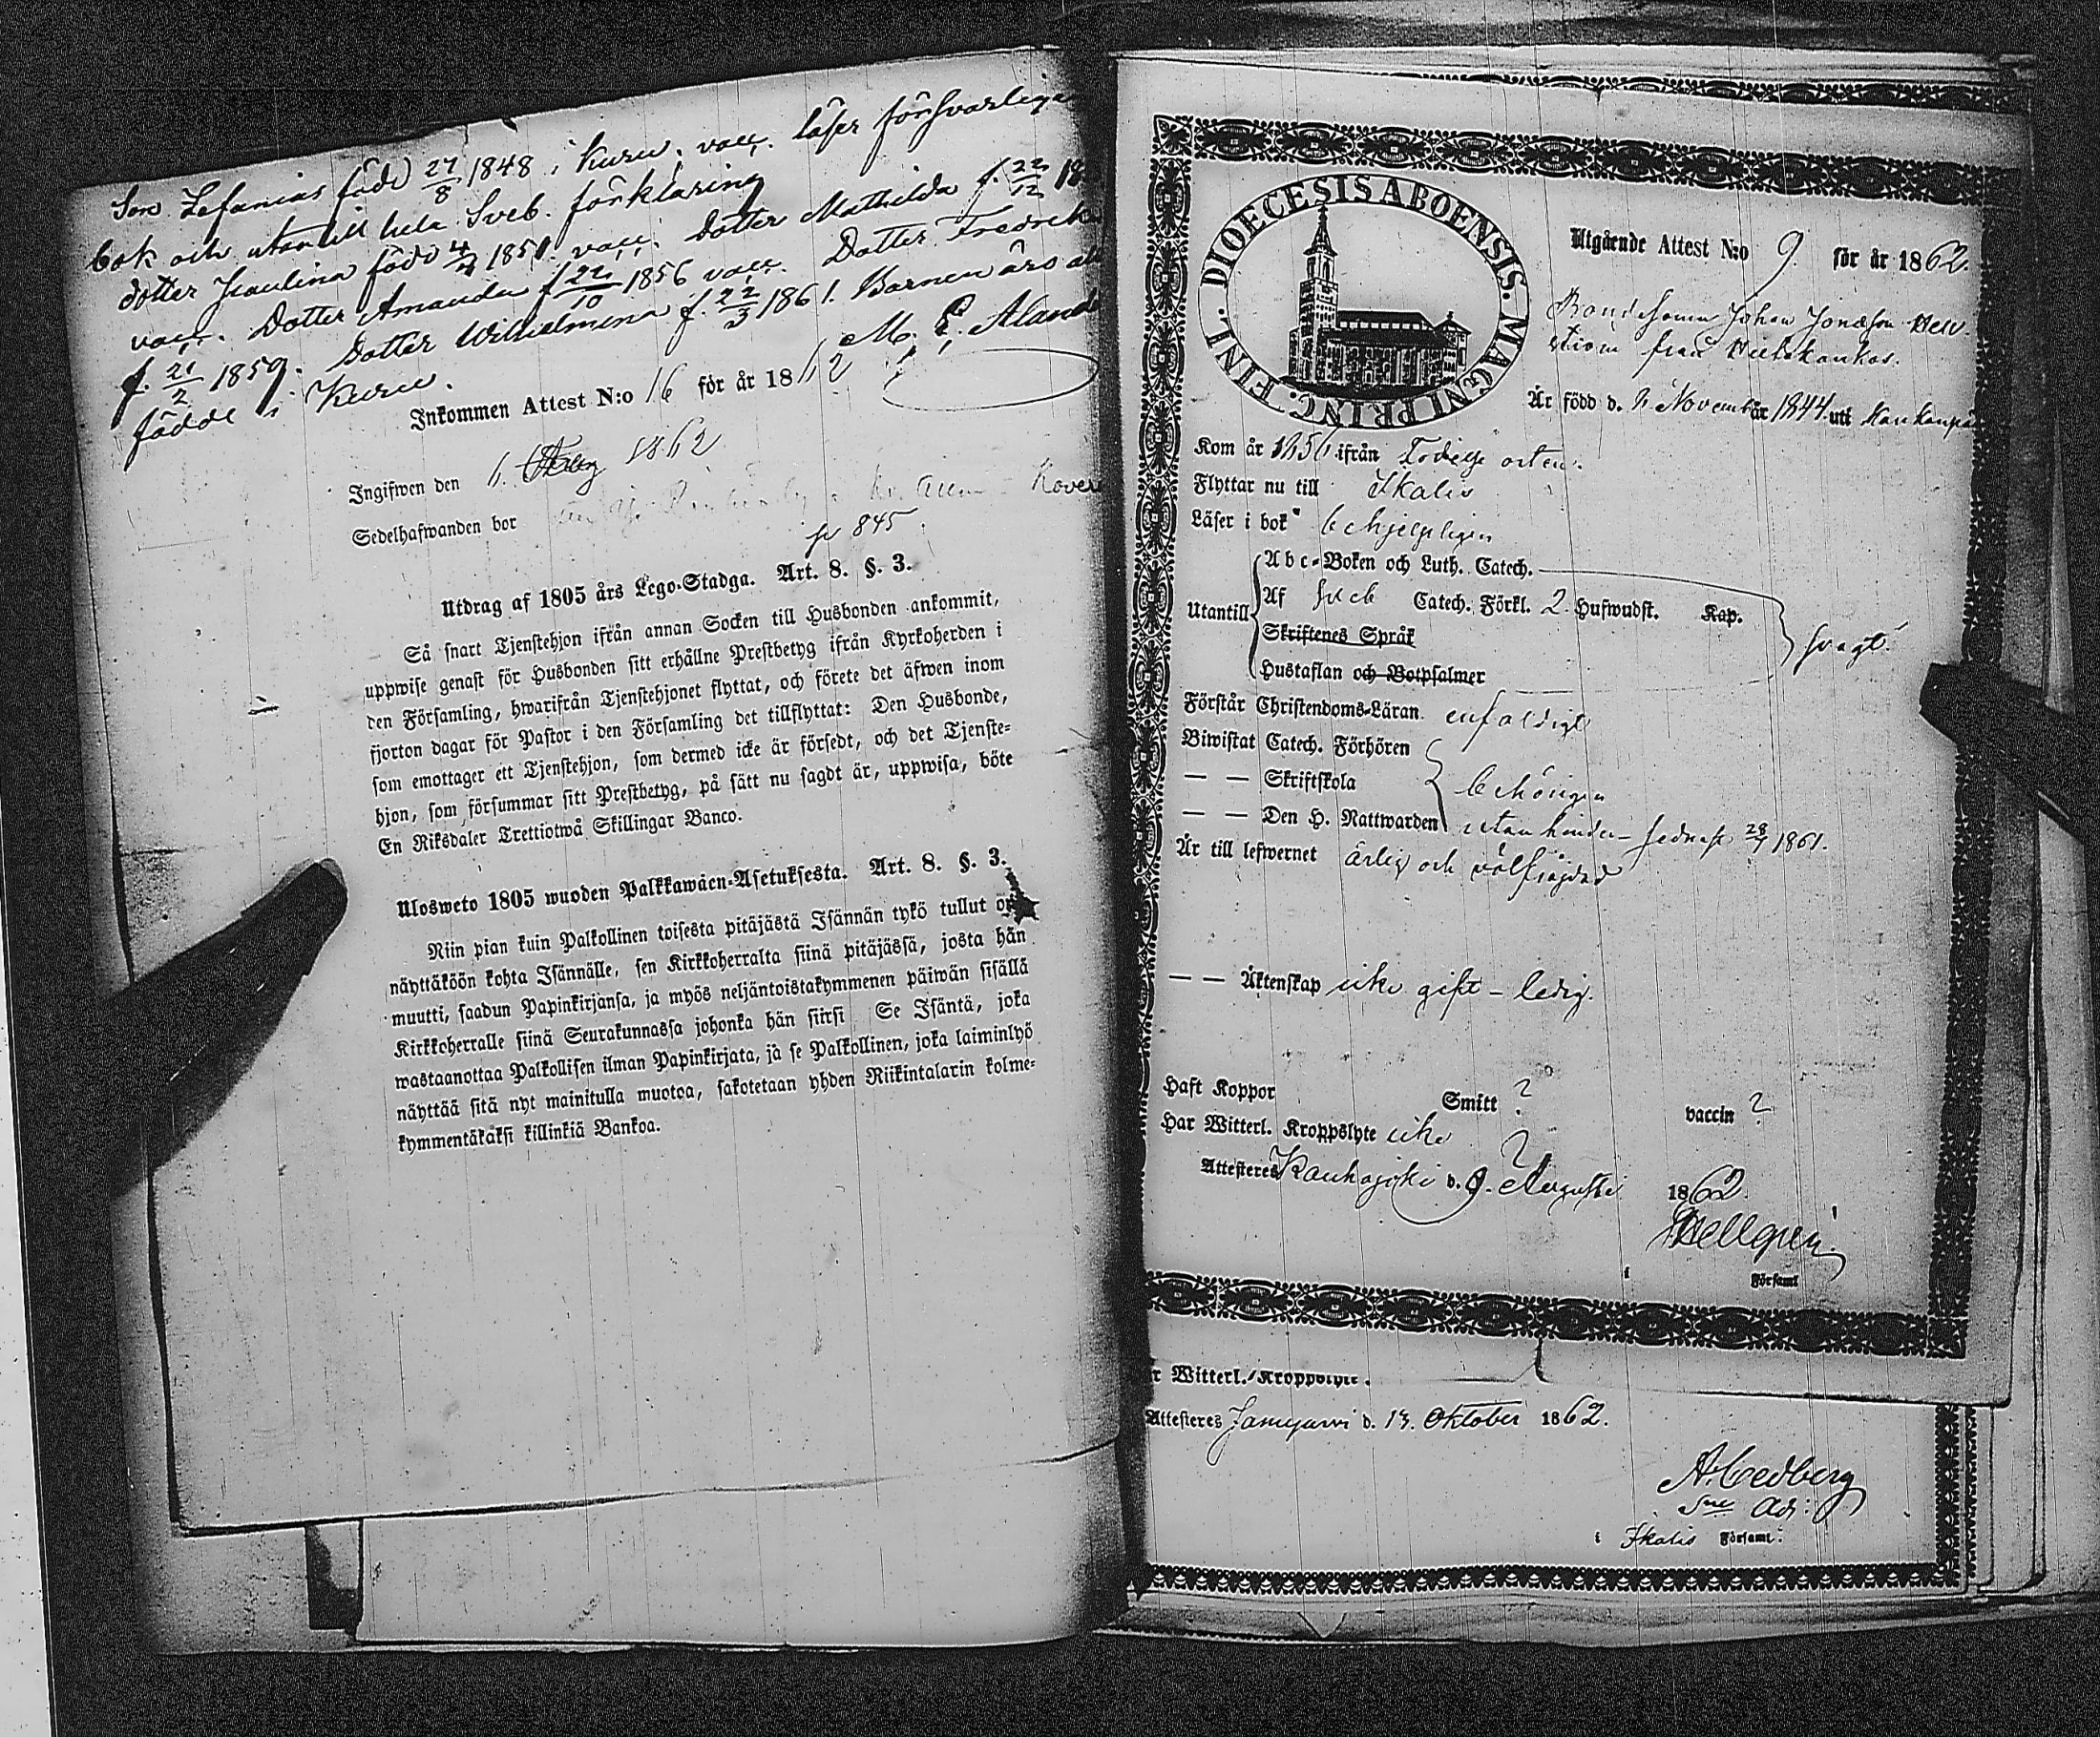 Son Zefanias född 27/8 1848 i Kuru. vacc. läser försvarligen
bok och utantill hela Sveb. förklaring
dotter Paulina född 4/4 1851. vacc. Dotter Mathilda f. 22/12 18
vacc. Dotter Amanda f. 22/10 1856 vacc. Dotter Fredrika
f. 21/2 1859. Dotter Wilhelmina f. 22/3 1861. Barnen äro alla
födde i Kuru.
M. E. Aland
Inkommen Attest N:o 16 för år 1862
Ingifwen den 1862
Sedelhafwanden bor
845
Utdrag af 1805 års Lego-Stadga. Art. 8. §. 3.
Så snart Tjenstehjon ifrån annan Socken till Husbonden ankommit,
uppwise genast för Husbonden sitt erhållne Prestbetyg ifrån Kyrkoherden i
den Församling, hwarifrån Tjenstehjonet flyttat, och förete det äfwen inom
fjorton dagar för Pastor i den Församling det tillflyttat: Den Husbonde,
som emottager ett Tjenstehjon, som dermed icke är försedt, och det Tjenste-
hjon, som försummar sitt Prestbetyg, på sätt nu sagdt är, uppwisa, böte
En Riksdaler Trettiotwå Skillingar Banco.
Ulosweto 1805 wuoden Palkkawäen-Asetuksesta. Art. 8. §. 3.
Niin pian kuin Palkollinen toisesta pitäjästä Isännän tykö tullut on
näyttäköön kohta Isännälle, sen Kirkkoherralta siinä pitäjässä, josta hän
muutti, saadun Papinkirjansa, ja myös neljäntoistakymmenen päiwän sisällä
Kirkkoherralle siinä Seurakunnassa johonka hän siirsi Se Isäntä, joka
wastaanottaa Palkollisen ilman Papinkirjata, ja se Palkollinen, joka laiminlyö
näyttää sitä nyt mainitulla muotoa, sakotetaan yhden Riikintalarin kolme-
kymmentäkaksi killinkiä Bankoa.
DIOECESIS ABOENSIS. MAGNI PRINC. FINL.
Utgående Attest N:o 9. för år 1862.
Bondesonen Johan Jonasson
från
Är född d. November år 1844 uti
Kom år 1856 ifrån Födelse orten.
Flyttar nu till Ikalis
Läser i bok behjelpligen
Abc-Boken och Luth. Catech.
Utantill Af Sveb Catech. Förkl. 2 Hufwudst. Kap.
Skriftenes Språk
svagt
Hustaflan och Botpsalmer
Förstår Christendoms-Läran. enfaldigt
Biwistat Catech. Förhören
— — Skriftskola behörigen
— — Den H. Nattwarden utan hinder – sednast 28/7 1861.
Är till lefwernet ärlig och välfräjdad
— — Äktenskap icke gift – ledig.
Haft Koppor Smitt ? vaccin ?
Har Witterl. Kroppslyte icke
Attesteres Kauhajoki d. 9. Augusti 1862.
Hellgren
i Församl
r Witterl. Kroppslyte.
Attesteres Jämijärvi d. 13. Oktober 1862.
A. Cedberg
Sne Adj:
i Ikalis Församl.